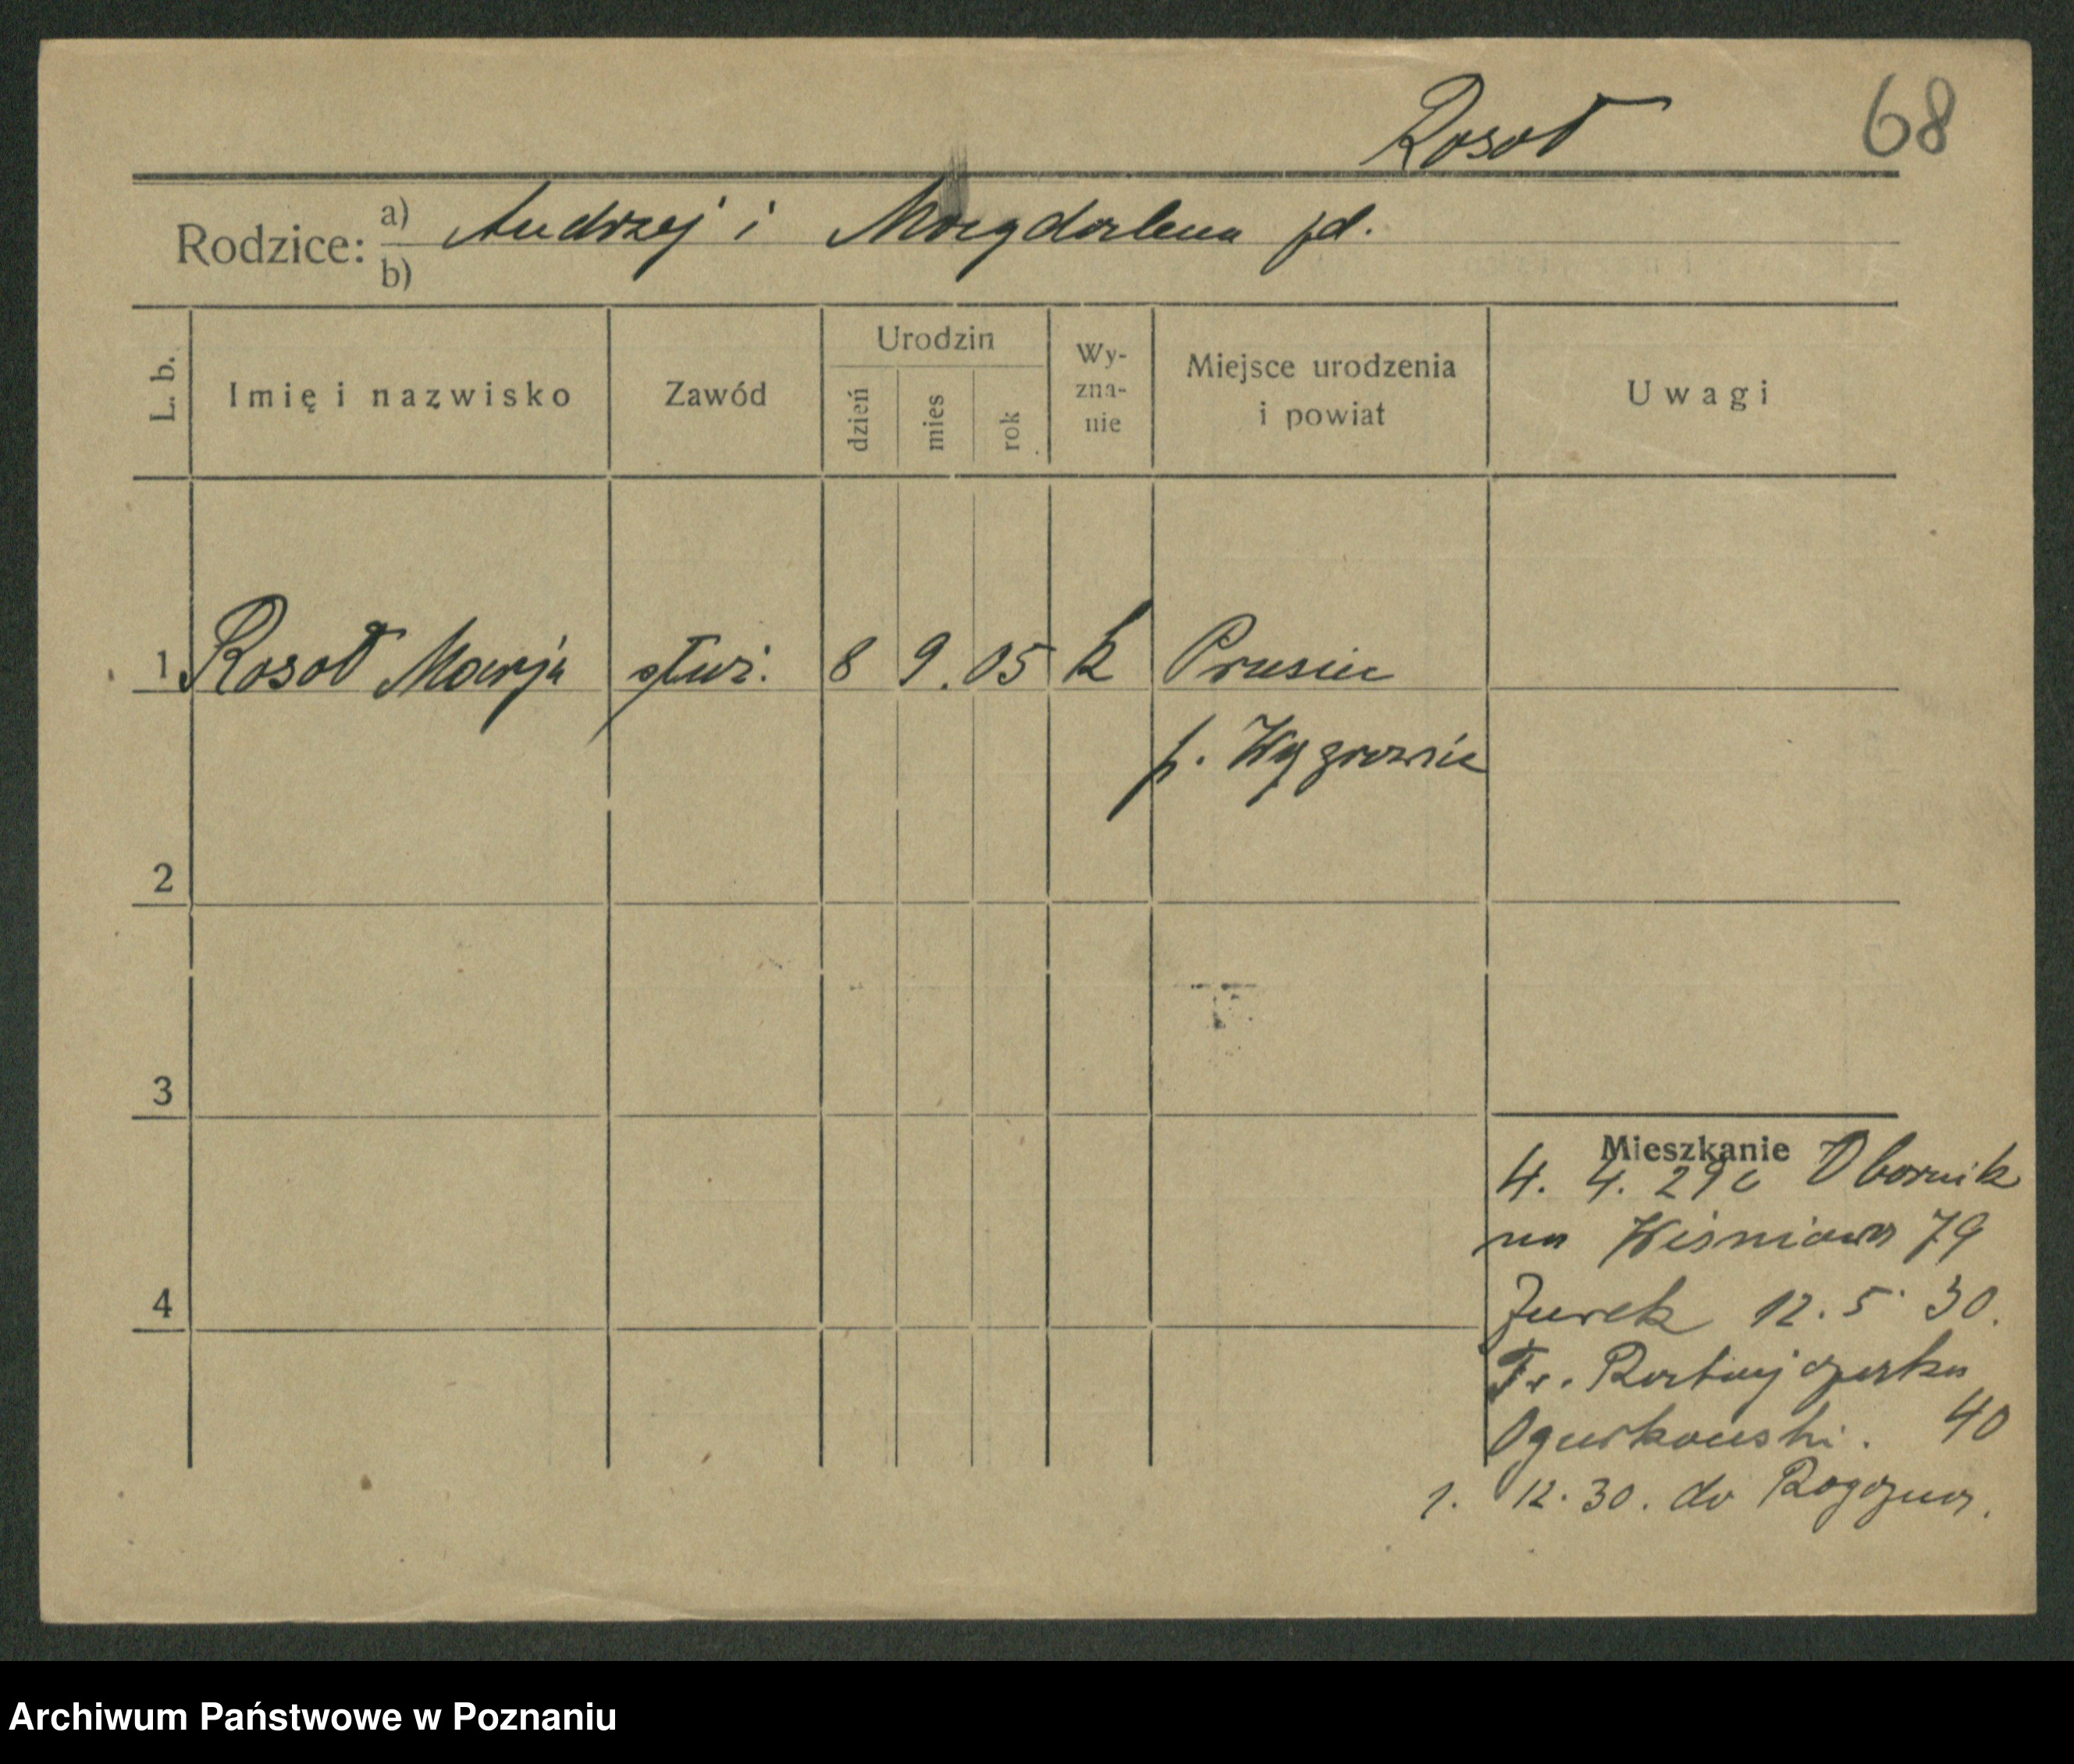 Rosoł 68
Rodzice: a) Andrzej i Magdalena jd.
b)
L. b.
Imię i nazwisko
Zawód
Urodzin
dzień
mies
rok
Wy-
zna-
nie
Miejsce urodzenia
i powiat
Uwagi
1 Rosoł Marja służ. 8 9. 05 k Prusiec
p. Wągrowiec
2
3
4
Mieszkanie
4. 4. 29 Obornik
na Wiśniowa 79
Jurek 12. 5 30.
Fr. Ratajczaka
Ogurkowski. 40
1. 12. 30. do Rogozna.